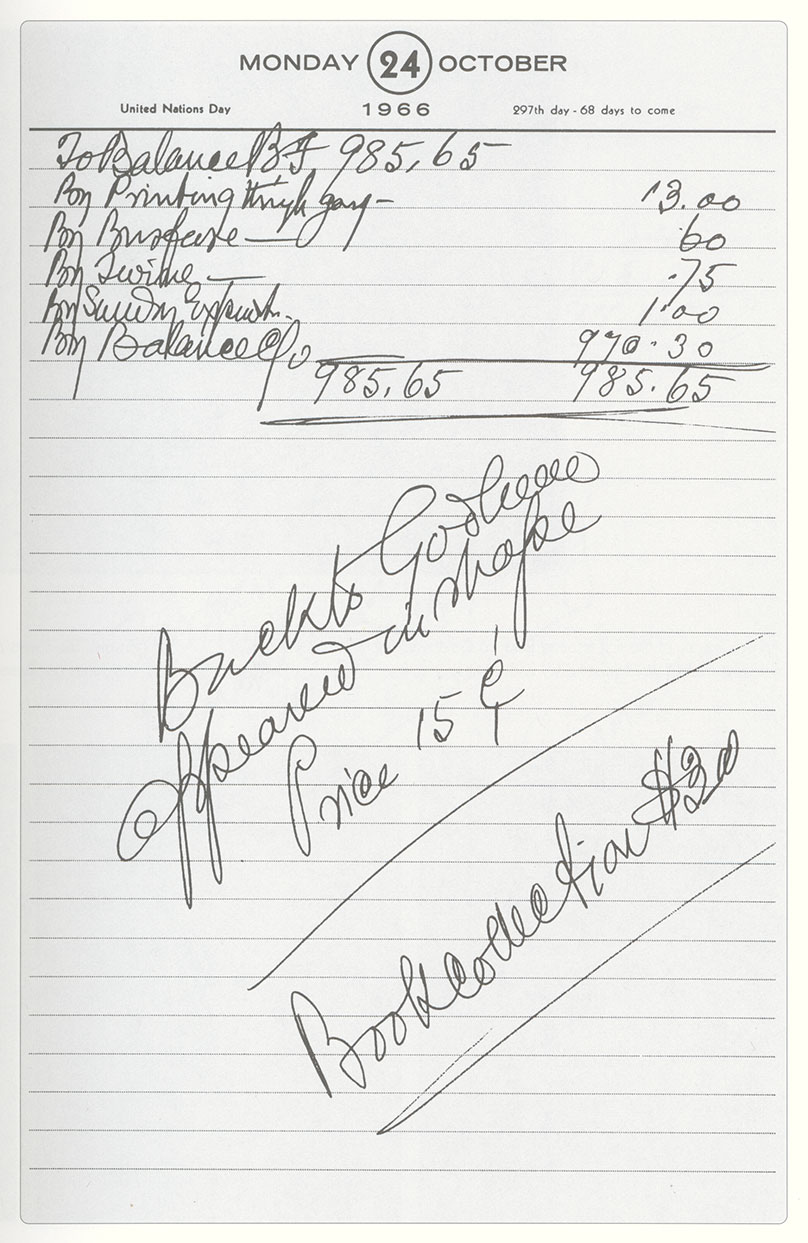 MONDAY 24 OCTOBER
United Nations Day 1966 297th day - 68 days to come
To Balance B F 985.65
By Printing through gary — 13.00
By Busfare — 60
By Twine — .75
By Sundry 1.00
By Balance C/o 970.30
985.65 985.65
Back to Godhead
Appeared in shape
Price 15 ¢
Book collection $20